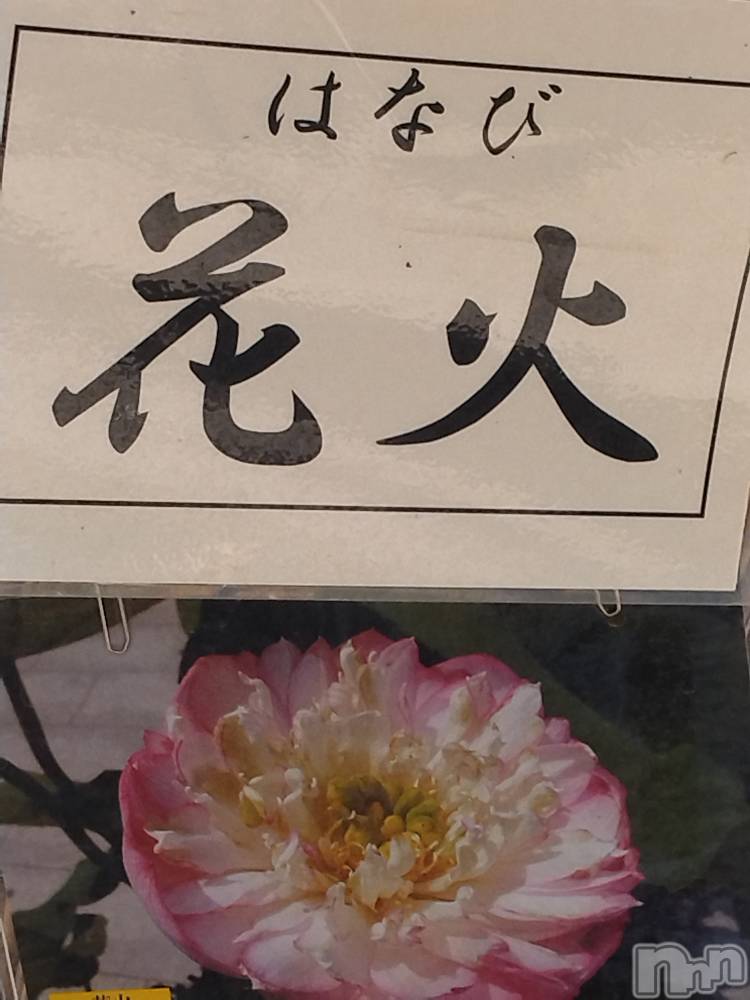 はなび
花火
nnn